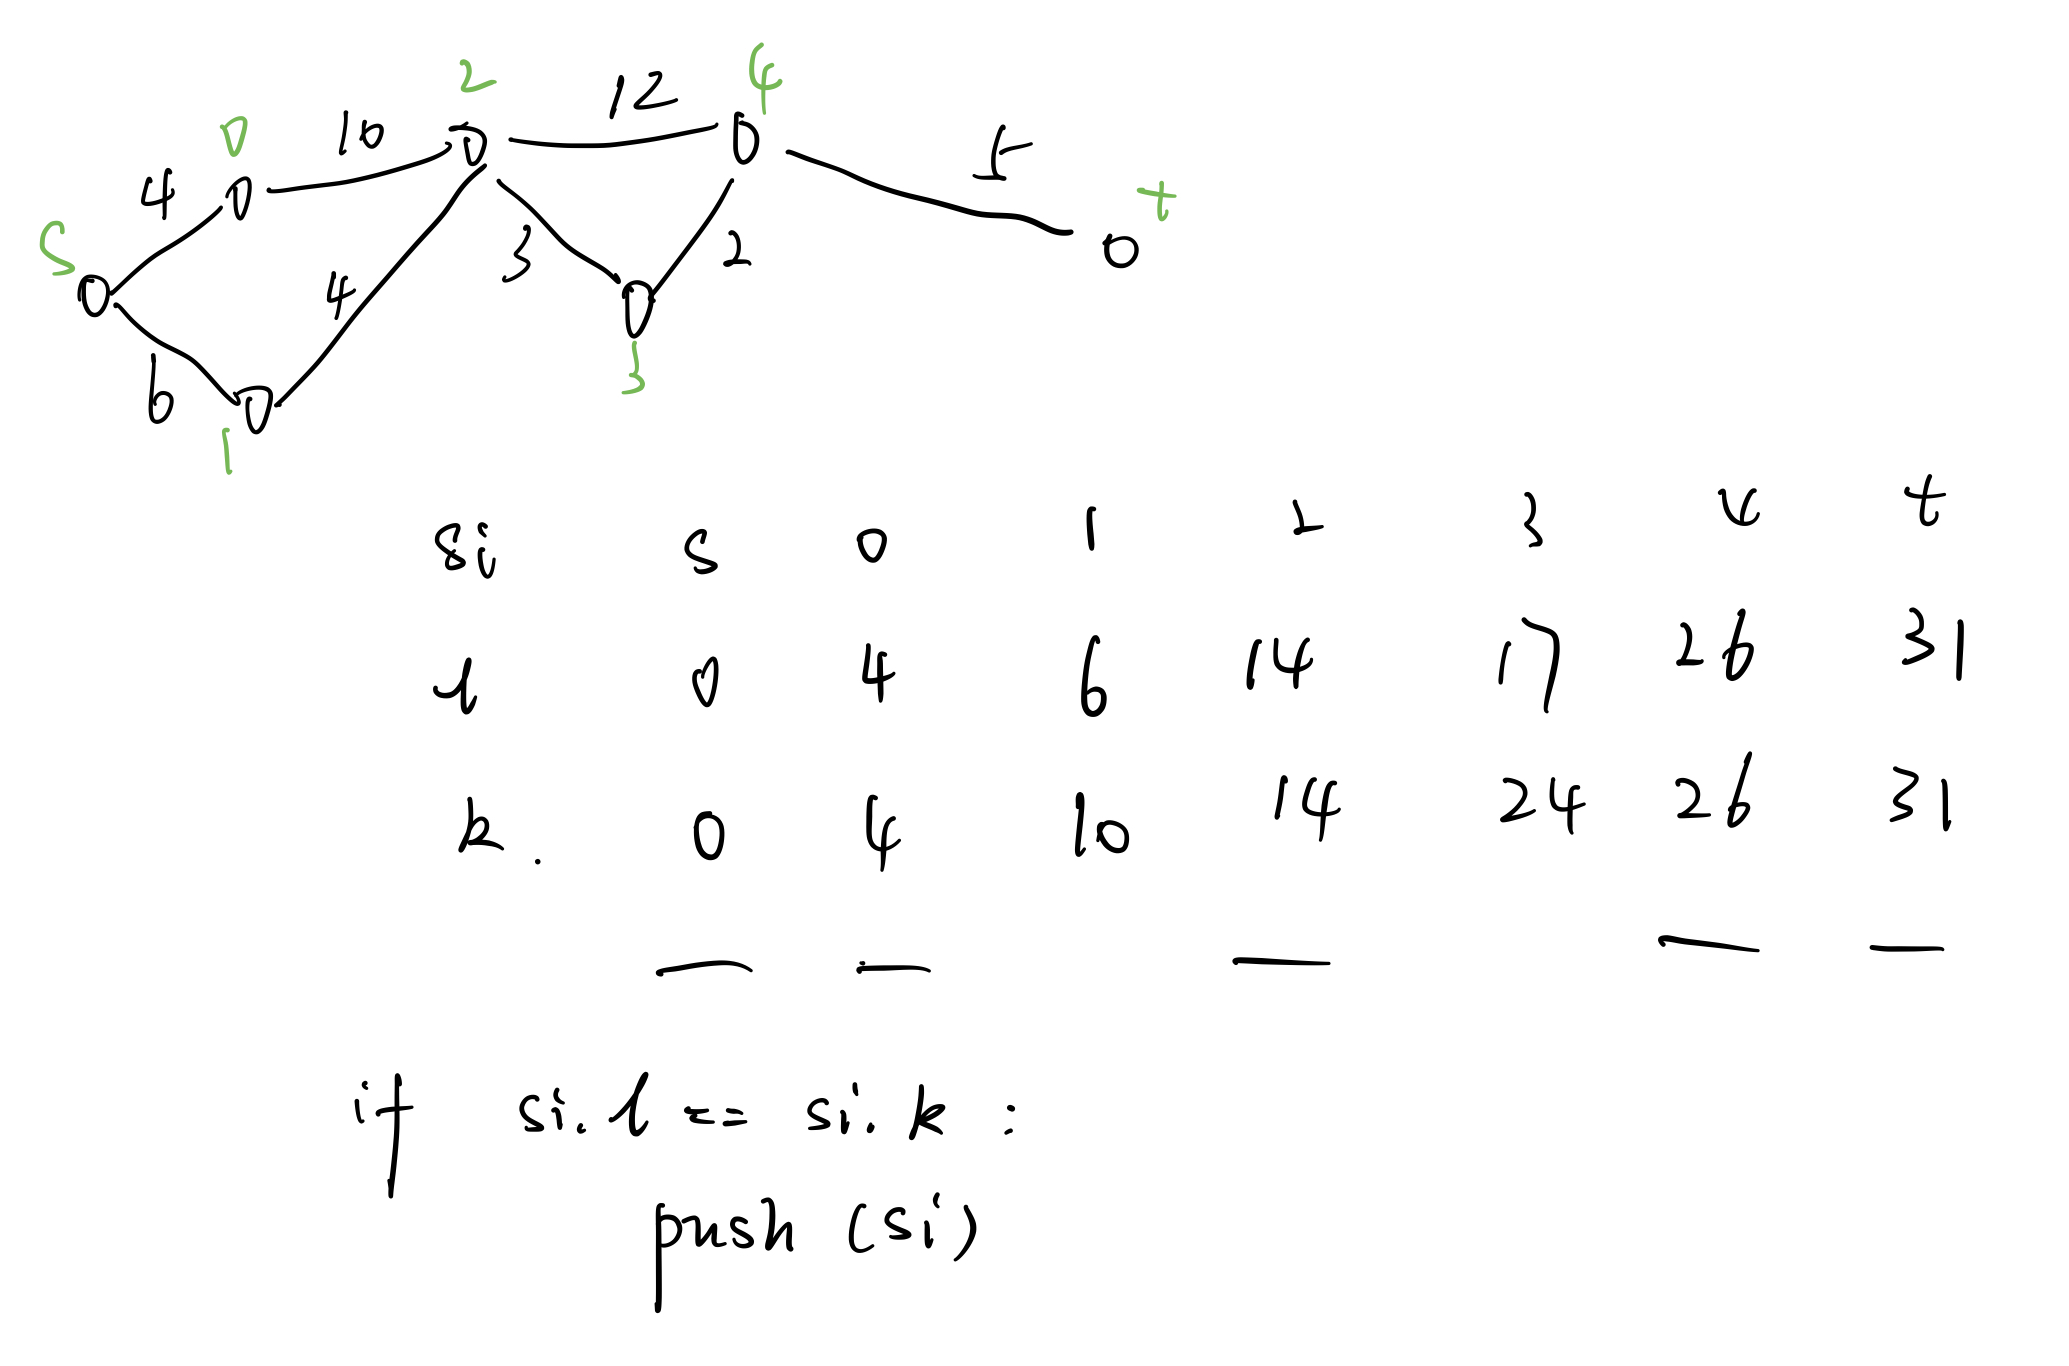 2 12 4
0 10 5
4 t
S
4 3 2
6 3
1
si s 0 1 2 3 4 t
l 0 4 6 14 17 26 31
k. 0 4 10 14 24 26 31
if si.l == si.k :
push (si)